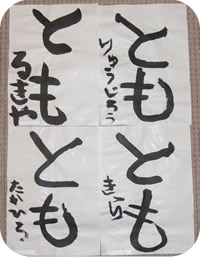 とも
りゅうじろう
とも
るきや
とも
とも
たかひろ